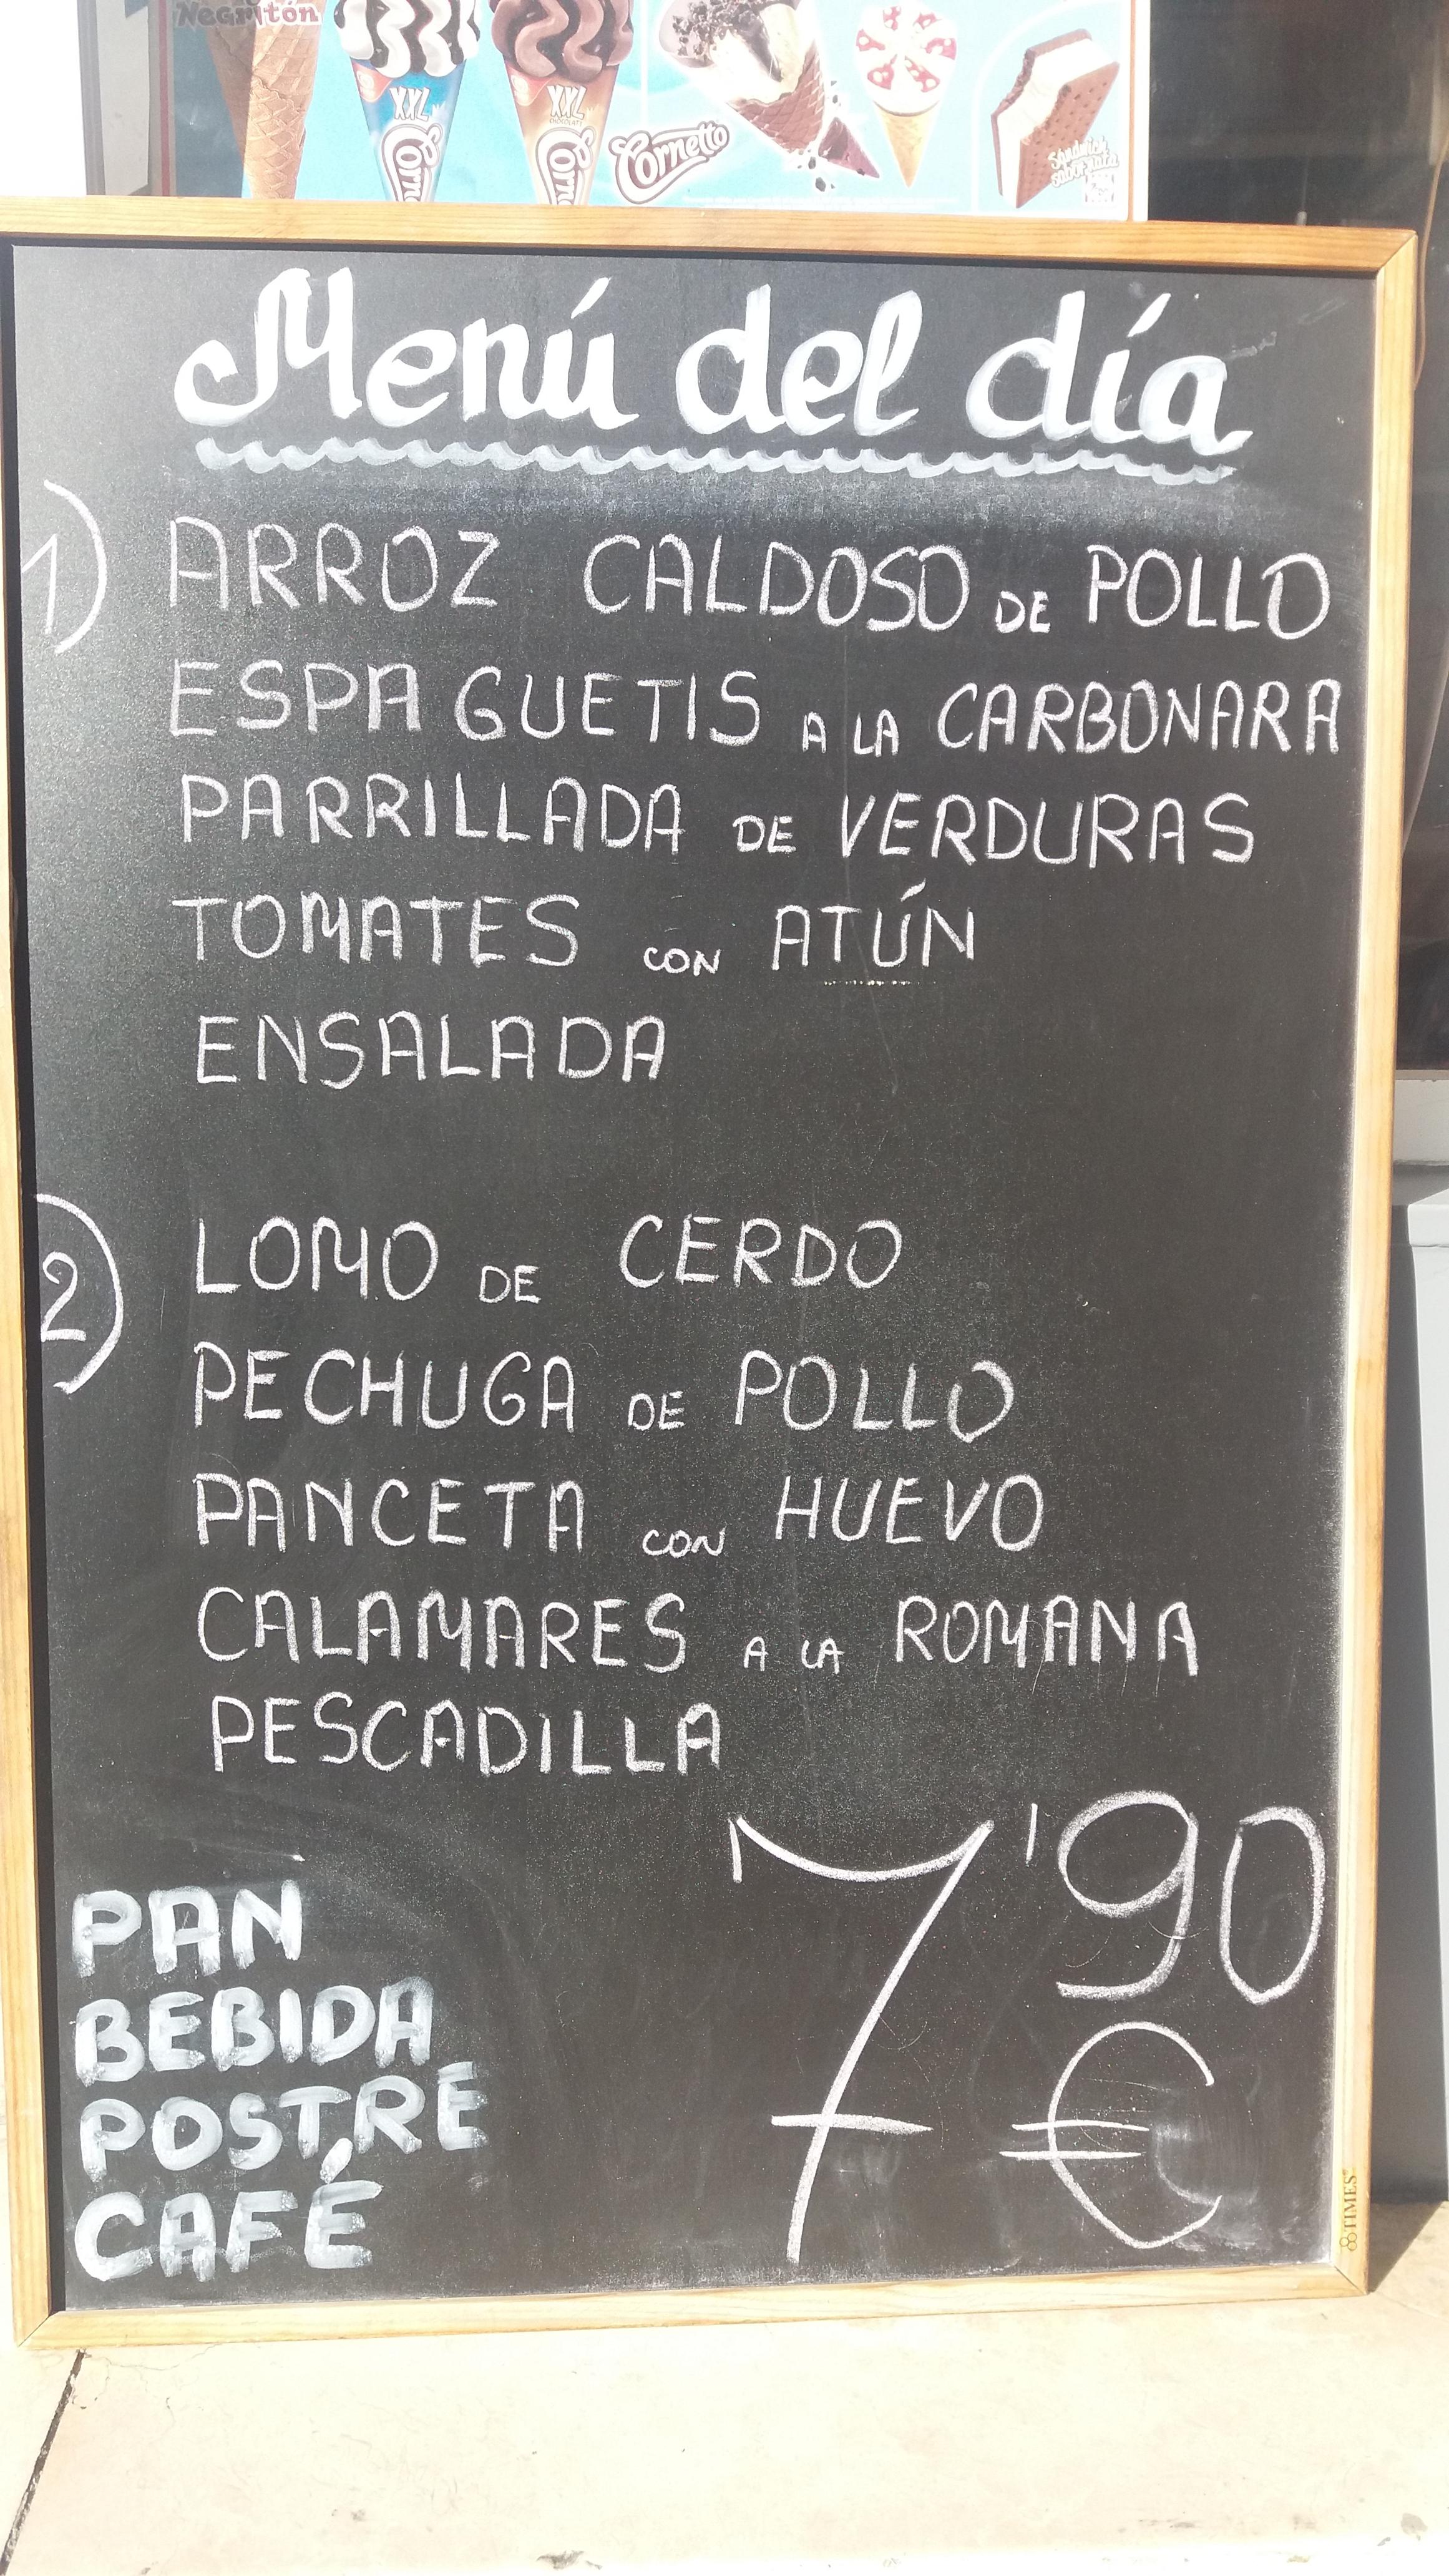 Negritón
XXL
XXL
CHOCOLATE
Cornetto
Sandwich
sabor nata
Menú del día
1) ARROZ CALDOSO DE POLLO
ESPAGUETIS A LA CARBONARA
PARRILLADA DE VERDURAS
TOMATES CON ATÚN
ENSALADA
2) LOMO DE CERDO
PECHUGA DE POLLO
PANCETA CON HUEVO
CALAMARES A LA ROMANA
PESCADILLA
7'90
€
PAN
BEBIDA
POSTRE
CAFÉ
TIMES